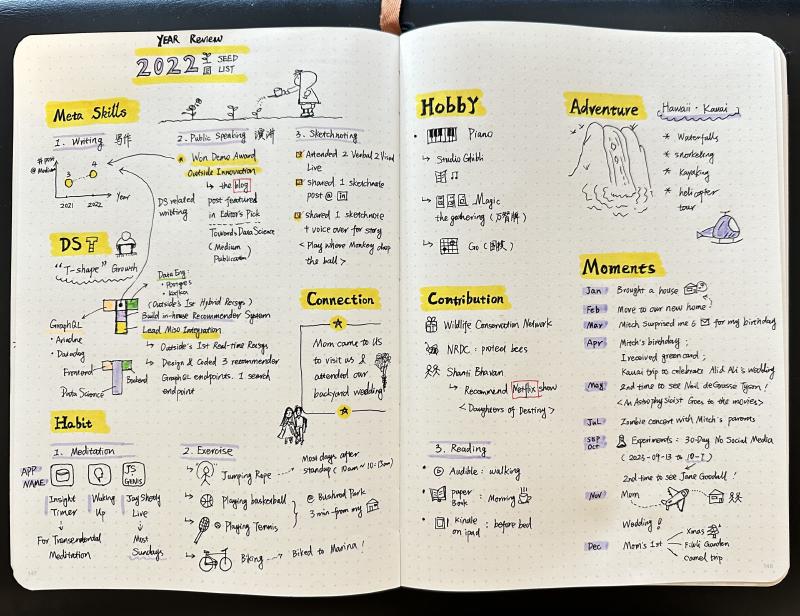 YEAR Review
2022 SEED
LIST
Meta Skills
1. Writing 写作
# post
@ Medium
3
4
2021 2022
Year
DS related
writing
2. Public Speaking 演讲
Won Demo Award
Outside Innovation
↳ the blog
post featured
in Editor's Pick
Towards Data Science
(Medium
Publication)
3. Sketchnoting
Attended 2 Verbal 2 Visual
Live
shared 1 sketchnote
post @ in
shared 1 sketchnote
+ voice over for story
< Play where Monkey drop
the ball >
DS T
"T-shape" Growth
Data Eng:
• Postgres
• Kafka
(Outside's 1st Hybrid Recsys)
Build in-house Recommender System
Lead Miso Integration
↳ Outside's 1st Real-time Recsys
GraphQL
• Ariadne
• Datadog
Frontend
Backend
Data Science
↳ Design & Coded 3 recommender
GraphQL endpoints. 1 search
endpoint
Connection
Mom came to US
to visit us &
attended our
backyard wedding
Habit
1. Meditation
APP
NAME:
JS
GENIS
Insight
Timer
Waking
Up
Jay Shetty
Live
For Transcendental
Meditation
Most
Sundays
2. Exercise
Jumping Rope
Most days after
standup (10am ~ 10:13am)
Playing basketball
@ Bushrod Park
3 min from my
Playing Tennis
Biking → Biked to Marina!
147
Hobby
• Piano
↳ Studio Ghibli
↳ Magic
the gathering (万智牌)
↳ Go (围棋)
Contribution
Wildlife Conservation Network
NRDC: protect bees
Shanti Bhavan
↳ Recommend Netflix show
<Daughters of Destiny>
3. Reading
• Audible: walking
• paper
Book: Morning
• Kindle
on ipad: before bed
Adventure
Hawaii · Kauai
* Waterfalls
* snorkeling
* Kayaking
* helicopter
tour
Moments
Jan Brought a house
Feb Move to our new home
Mar Mitch surprised me & for my birthday
Apr Mitch's birthday;
I received green card;
Kauai trip to celebrate Ali & Abi's wedding
May 2nd time to see Neil deGrasse Tyson!
<An Astrophysicist Goes to the movies>
Jul Zombie concert with Mitch's parents
SEP
Oct Experiments: 30-Day No Social Media
(2023-09-13 to 10-1)
2nd time to see Jane Goodall!
Nov Mom
Wedding!
Dec Mom's 1st
Xmas
Fuki Garden
Camel trip
148